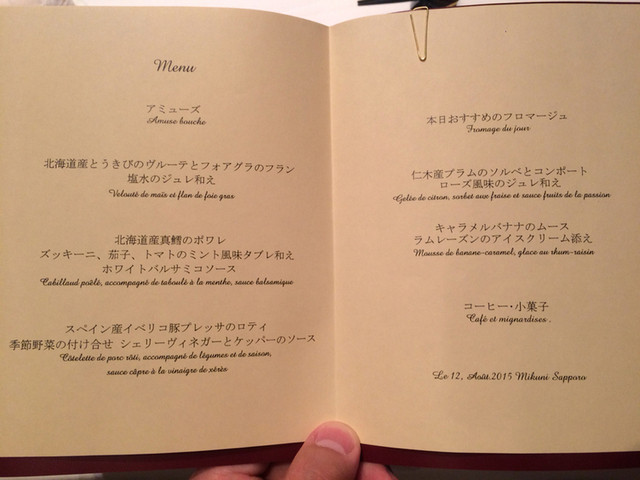 Menu
アミューズ
Amuse bouche
北海道産とうきびのヴルーテとフォアグラのフラン
塩水のジュレ和え
Velouté de maïs et flan de foie gras
北海道産真鱈のポワレ
ズッキーニ、茄子、トマトのミント風味タブレ和え
ホワイトバルサミコソース
Cabillaud poêlé, accompagné de taboulé à la menthe, sauce balsamique
スペイン産イベリコ豚プレッサのロティ
季節野菜の付け合せ シェリーヴィネガーとケッパーのソース
Côtelette de porc rôti, accompagné de légumes et de saison,
sauce câpre à la vinaigre de xérès
本日おすすめのフロマージュ
Fromage du jour
仁木産プラムのソルベとコンポート
ローズ風味のジュレ和え
Gelée de citron, sorbet aux fraise et sauce fruits de la passion
キャラメルバナナのムース
ラムレーズンのアイスクリーム添え
Mousse de banane-caramel, glace au rhum-raisin
コーヒー・小菓子
Café et mignardises .
Le 12, Août.2015 Mikuni Sapporo